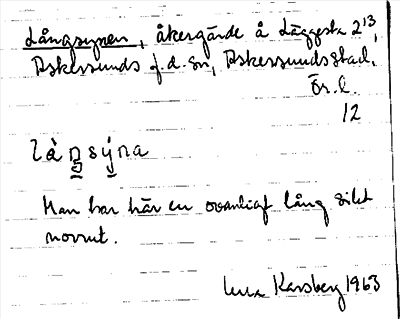 Långsynen, åkergärde å Läggesta 2¹³,
Askersunds f.d. sn, Askersunds stad,
Ör. l.
12
làŋsýna
Man har här en ovanligt lång sikt
norrut.
Karsberg 1963